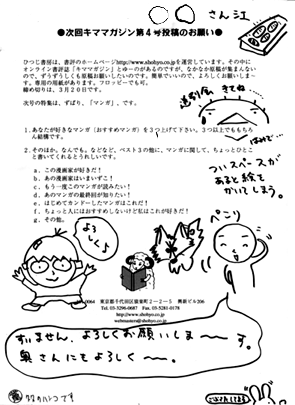 さん江
●次回キママガジン第4号投稿のお願い●
ひつじ書房は、書評のホームページhttp://www.shohyo.co.jpを運営しています。その中に
オンライン書評誌「キママガジン」とゆーのがあるのですが、なかなか原稿が集まんない
ので、ずうずうしくも原稿お願いしたいのです。簡単でいいので、よろしくお願いしま
す。専用の用紙があります。フロッピーでも可。
締め切りは、3月20日です。
次号の特集は、ずばり、「マンガ」、です。
1、あなたが好きなマンガ(おすすめマンガ)を3つ上げて下さい。3つ以上でももちろ
ん結構です。
2、そのほか、なんでも。などなど、ベスト3の他に、マンガに関して、ちょっとひとこ
と書いてくれるとうれしいです。
a、この漫画家が好きだ!
b、あの漫画家はいまいずこ!
c、もう一度このマンガが読みたい!
d、あのマンガの最終回が知りたい!
e、はじめてカンドーしたマンガはこれだ!
f、ちょっと人にはおすすめしないけど私はこれが好きだ!
g、その他。
送別会 きてね
ついスペースが
あると絵を
かいてしまう。
ペこり
よろしく
0064 東京都千代田区猿楽町2-2-5 興新ビル206
Tel. 03-5296-0687 Fax. 03-5281-0178
http://www.shohyo.co.jp
webmaster@shohyo.co.jp
すいません、よろしくお願いしま〜す。
奥さんにもよろしく〜。